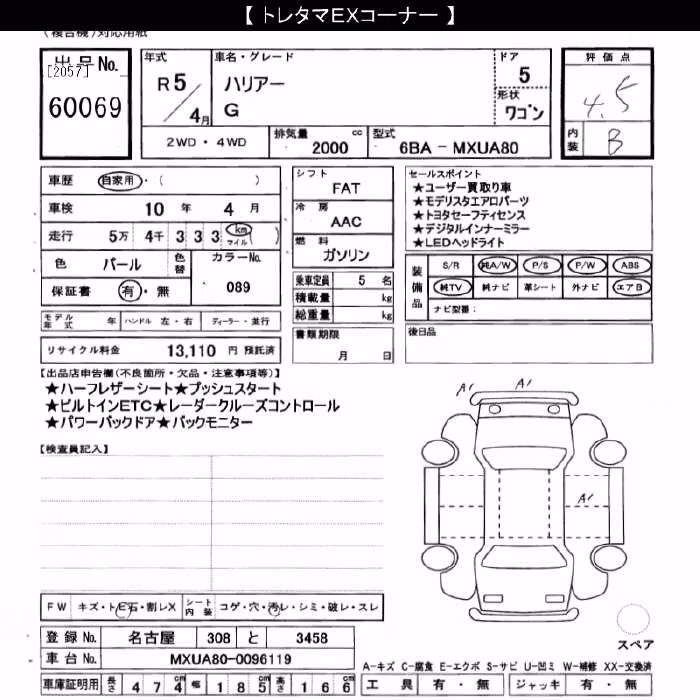 【 トレタマEXコーナー 】
(複合機)対応用紙
出品No.
[2057]
60069
年式
R 5 / 4月
車名・グレード
ハリアー
G
ドア
5
形状
ワゴン
2WD ・ 4WD
排気量 cc
2000
型式
6BA － MXUA80
評価点
4.5
内装
B
車歴 自家用・( )
車検 10 年 4 月
走行 5万 4千 3 3 3 km マイル ( )
色 パール 色替
カラーNo.
089
保証書 有・無
シフト
FAT
冷房
AAC
燃料
ガソリン
乗車定員 5 名
積載量 kg
総重量 kg
書類期限
月 日
セールスポイント
★ユーザー買取り車
★モデリスタエアロパーツ
★トヨタセーフティセンス
★デジタルインナーミラー
★LEDヘッドライト
装備品
S/R 純A/W P/S P/W ABS
純TV 純ナビ 革シート 外ナビ エアB
ナビ型番:
モデル年式 年 ハンドル 左・右 ディーラー・並行
リサイクル料金 13,110 円 預託済
後日品
【出品店申告欄(不良箇所・欠品・注意事項等)】
★ハーフレザーシート★プッシュスタート
★ビルトインETC★レーダークルーズコントロール
★パワーバックドア★バックモニター
【検査員記入】
A1
A1
A1
FW キズ・トビ石・割レX シート内装 コゲ・穴・汚レ・シミ・破レ・スレ
登録No. 名古屋 308 と 3458
車台No. MXUA80-0096119
車庫証明用 長さ 4 7 4 cm 幅 1 8 5 cm 高さ 1 6 6 cm
スペア
A-キズ C-腐食 E-エクボ S-サビ U-凹ミ W-補修 XX-交換済
工具 有 ・ 無 ジャッキ 有 ・ 無